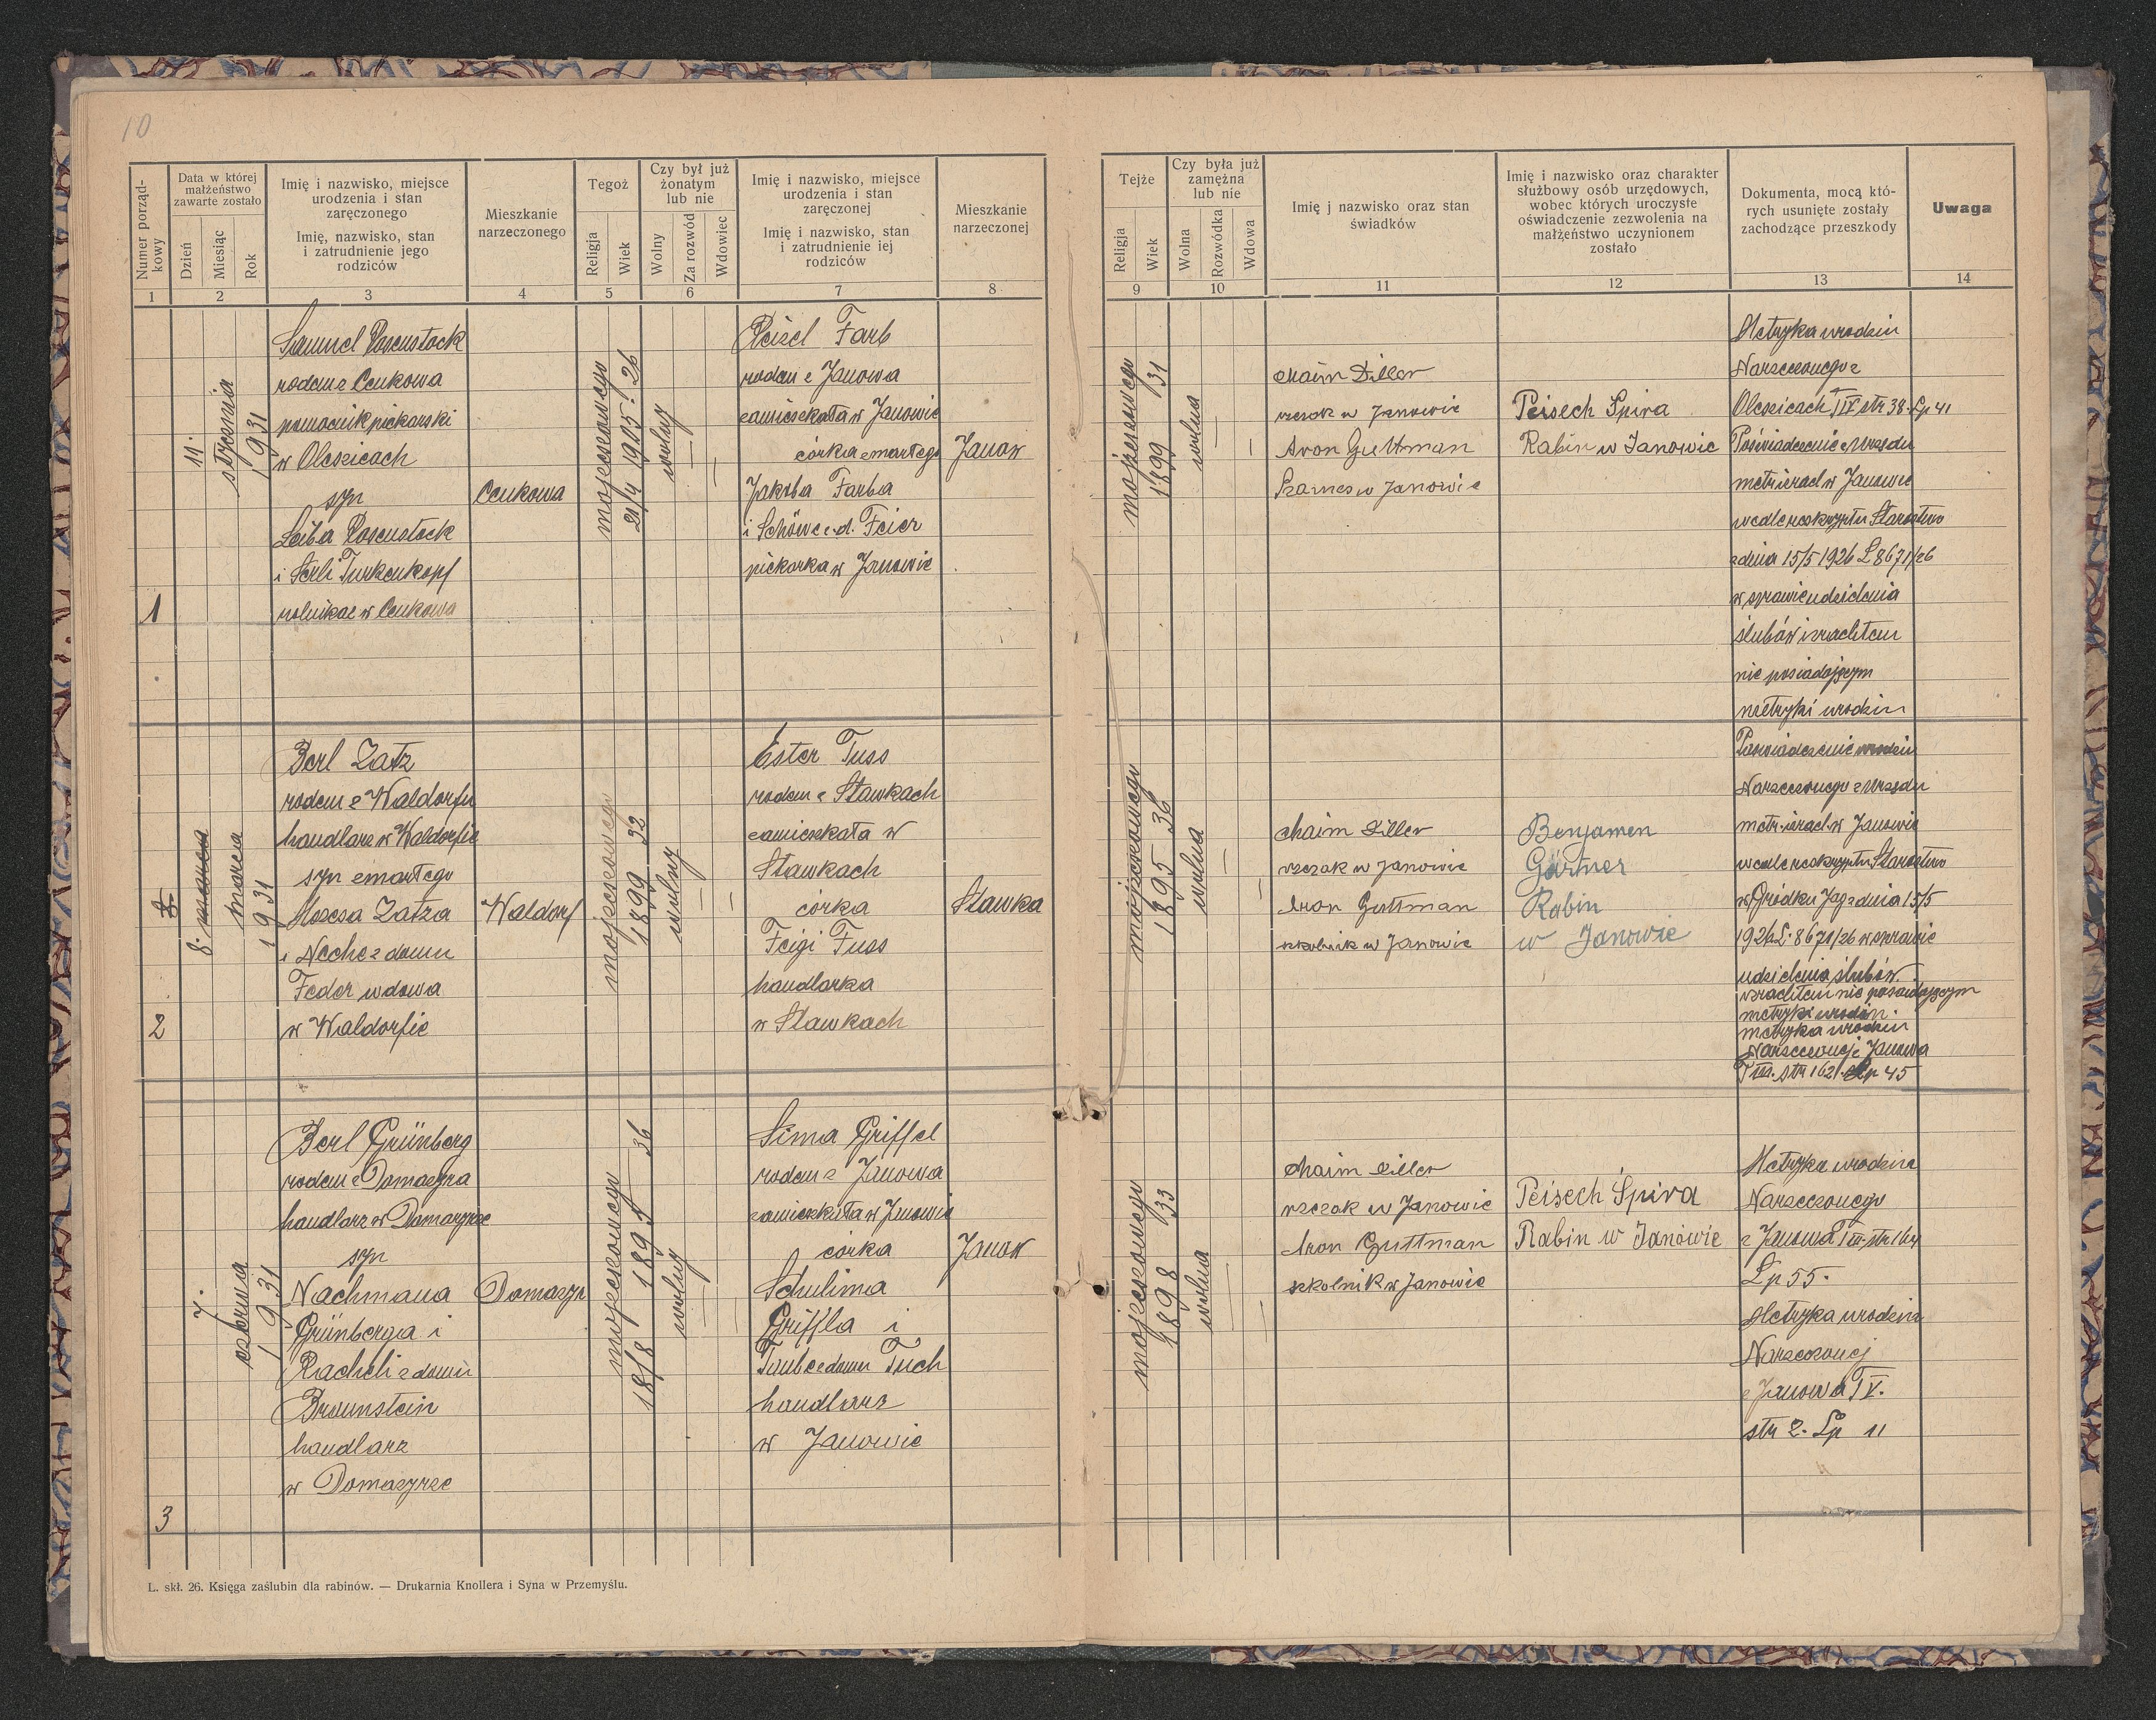 10
Numer porząd-
kowy
Data w której
małżeństwo
zawarte zostało
Dzień
Miesiąc
Rok
Imię i nazwisko, miejsce
urodzenia i stan
zaręczonego
Imię, nazwisko, stan
i zatrudnienie jego
rodziców
Mieszkanie
narzeczonego
Tegoż
Religja
Wiek
Czy był już
żonatym
lub nie
Wolny
Za rozwód
Wdowiec
Imię i nazwisko, miejsce
urodzenia i stan
zaręczonej
Imię i nazwisko, stan
i zatrudnienie iej
rodziców
Mieszkanie
narzeczonej
Tejże
Religja
Wiek
Czy była już
zamężna
lub nie
Wolna
Rozwódka
Wdowa
Imię j nazwisko oraz stan
świadków
Imię i nazwisko oraz charakter
służbowy osób urzędowych,
wobec których uroczyste
oświadczenie zezwolenia na
małżeństwo uczynionem
zostało
Dokumenta, mocą któ-
rych usunięte zostały
zachodzące przeszkody
Uwaga
1 2 3 4 5 6 7 8 9 10 11 12 13 14
1
11.
stycznia
1931
Samuel Rosenstock
rodem z Cenkowa
pomocnik piekarski
w Oleszicach
syn
Leiba Rosenstock
i Serli Turkenkopf
rolnikae w Cenkowa
Cenkowa
mojżeszowego
21/4 1905. 26
wolny
Reizel Farb
rodem z Janowa
zamieszkała w Janowie
córka zmarłego
Jakóba Farba
i Schöwe z.d. Feier
piekarka w Janowie
Janow
mojżeszowego
1899 31
wolna
Chaim Diller
rzezak w Janowie
Aron Guttman
Szames w Janowie
Peisech Spira
Rabin w Janowie
Metryka urodzin
Narzeczonego z
Oleszicach T IV str 38. Lp 41
Poświadczenie z Urzędu
metr izrael w Janowie
wedle reskryptu Starostwo
z dnia 15/5 1926 L 8671/26
w sprawie udzielenia
ślubów izraelitem
nie posiadajsczym
metryki urodzin
2
8. marca
marca
1931
Berl Zatz
rodem z Waldorfu
handlarz w Waldorfie
syn zmarłego
Mozesa Zatza
i Neche z domu
Feder wdowa
w Waldorfie
Waldorf
mojżeszowego
1899 32
wolny
Ester Fuss
rodem z Stawkach
zamieszkała w
Stawkach
córka
Feigi Fuss
handlarka
w Stawkach
Stawka
mojżeszowego
1895 36
wolna
Chaim Diller
rzezak w Janowie
Aron Guttman
szkolnik w Janowie
Benjamen
Gärtner
Rabin
w Janowie
Poswiadczenie urodzin
Narzeczonego z Urzędu
metr. izrael. w Janowie
wedle reskryptu Starostwo
w Gródku Jag z dnia 15/5
1926 L. 8671/26 w sprawie
udzielenia ślubów
izraelitem nie posiadajsczym
metryki urodzin.
metryka urodzin
Narzeczonej z Janowa
T III. str 162. Lp 45
3
7.
czerwca
1931
Berl Grünberg
rodem z Domazyra
handlarz w Domazyrze
syn
Nachmana
Grünberga i
Racheli z domu
Braunstein
handlarz
w Domazyrze
Domazyr
mojżeszowego
18/8 1895 36
wolny
Sima Griffel
rodem z Janowa
zamieszkała w Janowie
córka
Schulima
Griffla i
Taube z domu Tuch
handlarz
w Janowie
Janow
mojżeszowego
1898 33
wolna
Chaim Diller
rzezak w Janowie
Aron Guttman
szkolnik w Janowie
Peisech Spira
Rabin w Janowie
Metryka urodzin
Narzeczonego
z Janowa T III. str 164
Lp 55.
Metryka urodzin
Narzeczonej
z Janowa T V.
str 2. Lp 11
L. skł. 26. Księga zaślubin dla rabinów. — Drukarnia Knollera i Syna w Przemyślu.